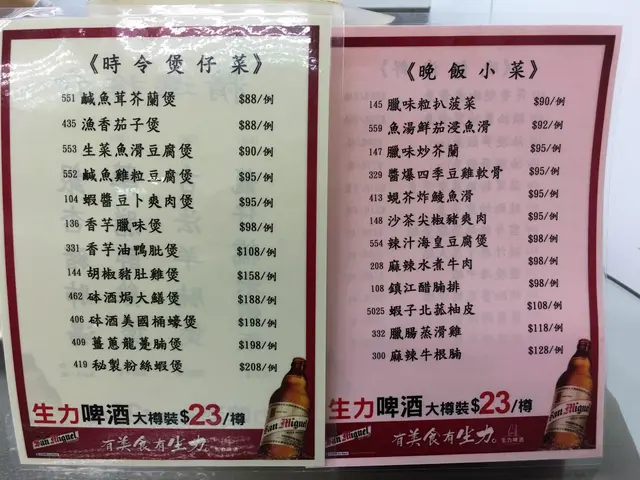 《時令煲仔菜》
551 鹹魚茸芥蘭煲 $88/例
435 漁香茄子煲 $88/例
553 生菜魚滑豆腐煲 $90/例
552 鹹魚雞粒豆腐煲 $95/例
104 蝦醬豆卜爽肉煲 $95/例
136 香芋臘味煲 $98/例
331 香芋油鴨肶煲 $108/例
144 胡椒豬肚雞煲 $158/例
462 砵酒焗大鱔煲 $188/例
406 砵酒美國桶蠔煲 $198/例
409 薑蔥龍躉腩煲 $198/例
419 秘製粉絲蝦煲 $208/例
生力啤酒大樽裝$23/樽
San Miguel 有美食有生力。
《晚飯小菜》
145 臘味粒扒菠菜 $90/例
559 魚湯鮮茄浸魚滑 $92/例
147 臘味炒芥蘭 $95/例
329 醬爆四季豆雞軟骨 $95/例
413 蜆芥炸鯪魚滑 $95/例
148 沙茶尖椒豬爽肉 $95/例
554 辣汁海皇豆腐煲 $98/例
208 麻辣水煮牛肉 $98/例
108 鎮江醋腩排 $98/例
5025 蝦子北菰柚皮 $108/例
332 臘腸蒸滑雞 $118/例
300 麻辣牛根腩 $128/例
生力啤酒大樽裝$23/樽
San Miguel 有美食有生力。 生力啤酒